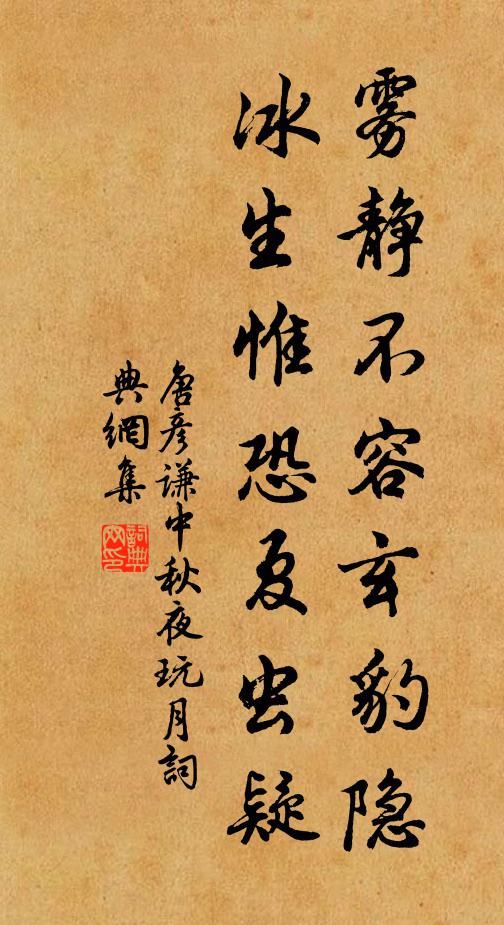 雾静不容玄豹隐
冰生惟恐夏虫疑
唐彦谦中秋夜玩月詞
典網集
詞典
网印